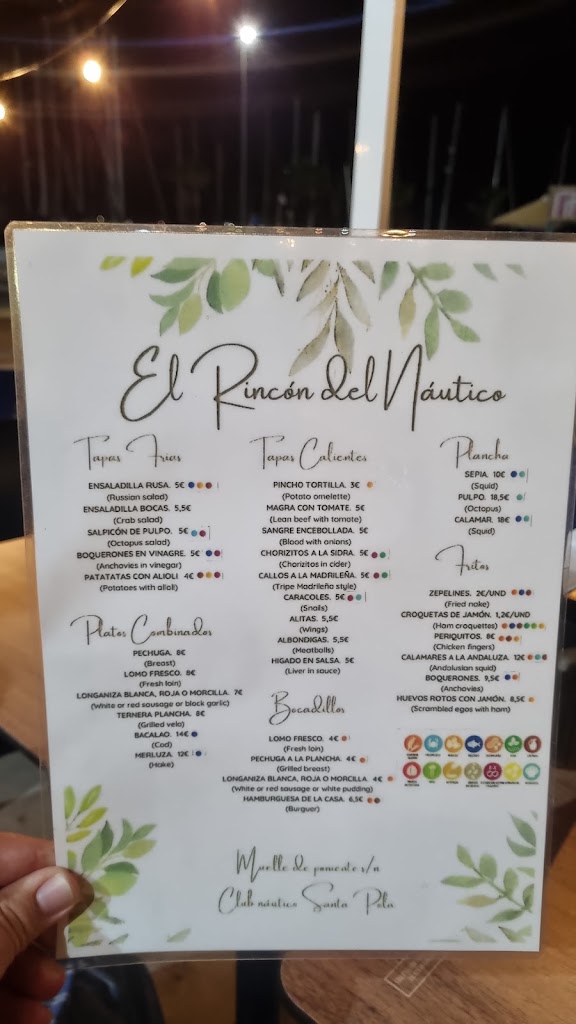 El Rincón del Náutico
Tapas Frias
ENSALADILLA RUSA. 5€
(Russian salad)
ENSALADILLA BOCAS. 5,5€
(Crab salad)
SALPICÓN DE PULPO. 5€
(Octopus salad)
BOQUERONES EN VINAGRE. 5€
(Anchovies in vinegar)
PATATATAS CON ALIOLI 4€
(Potatoes with alioli)
Platos Combinados
PECHUGA. 8€
(Breast)
LOMO FRESCO. 8€
(Fresh loin)
LONGANIZA BLANCA, ROJA O MORCILLA. 7€
(White or red sausage or black garlic)
TERNERA PLANCHA. 8€
(Grilled vela)
BACALAO. 14€
(Cod)
MERLUZA. 12€
(Hake)
Tapas Calientes
PINCHO TORTILLA. 3€
(Potato omelette)
MAGRA CON TOMATE. 5€
(Lean beef with tomato)
SANGRE ENCEBOLLADA. 5€
(Blood with onions)
CHORIZITOS A LA SIDRA. 5€
(Chorizitos in cider)
CALLOS A LA MADRILEÑA. 5€
(Tripe Madrileña style)
CARACOLES. 5€
(Snails)
ALITAS. 5,5€
(Wings)
ALBONDIGAS. 5,5€
(Meatballs)
HIGADO EN SALSA. 5€
(Liver in sauce)
Bocadillos
LOMO FRESCO. 4€
(Fresh loin)
PECHUGA A LA PLANCHA. 4€
(Grilled breast)
LONGANIZA BLANCA, ROJA O MORCILLA. 4€
(White or red sausage or white pudding)
HAMBURGUESA DE LA CASA. 6,5€
(Burguer)
Plancha
SEPIA. 10€
(Squid)
PULPO. 18,5€
(Octopus)
CALAMAR. 18€
(Squid)
Fritos
ZEPELINES. 2€/UND
(Fried nake)
CROQUETAS DE JAMÓN. 1,2€/UND
(Ham croquettes)
PERIQUITOS. 8€
(Chicken fingers)
CALAMARES A LA ANDALUZA. 12€
(Andalusian squid)
BOQUERONES. 9,5€
(Anchovies)
HUEVOS ROTOS CON JAMÓN. 8,5€
(Scrambled egos with ham)
Muelle de poniente s/n
Club náutico Santa Pola